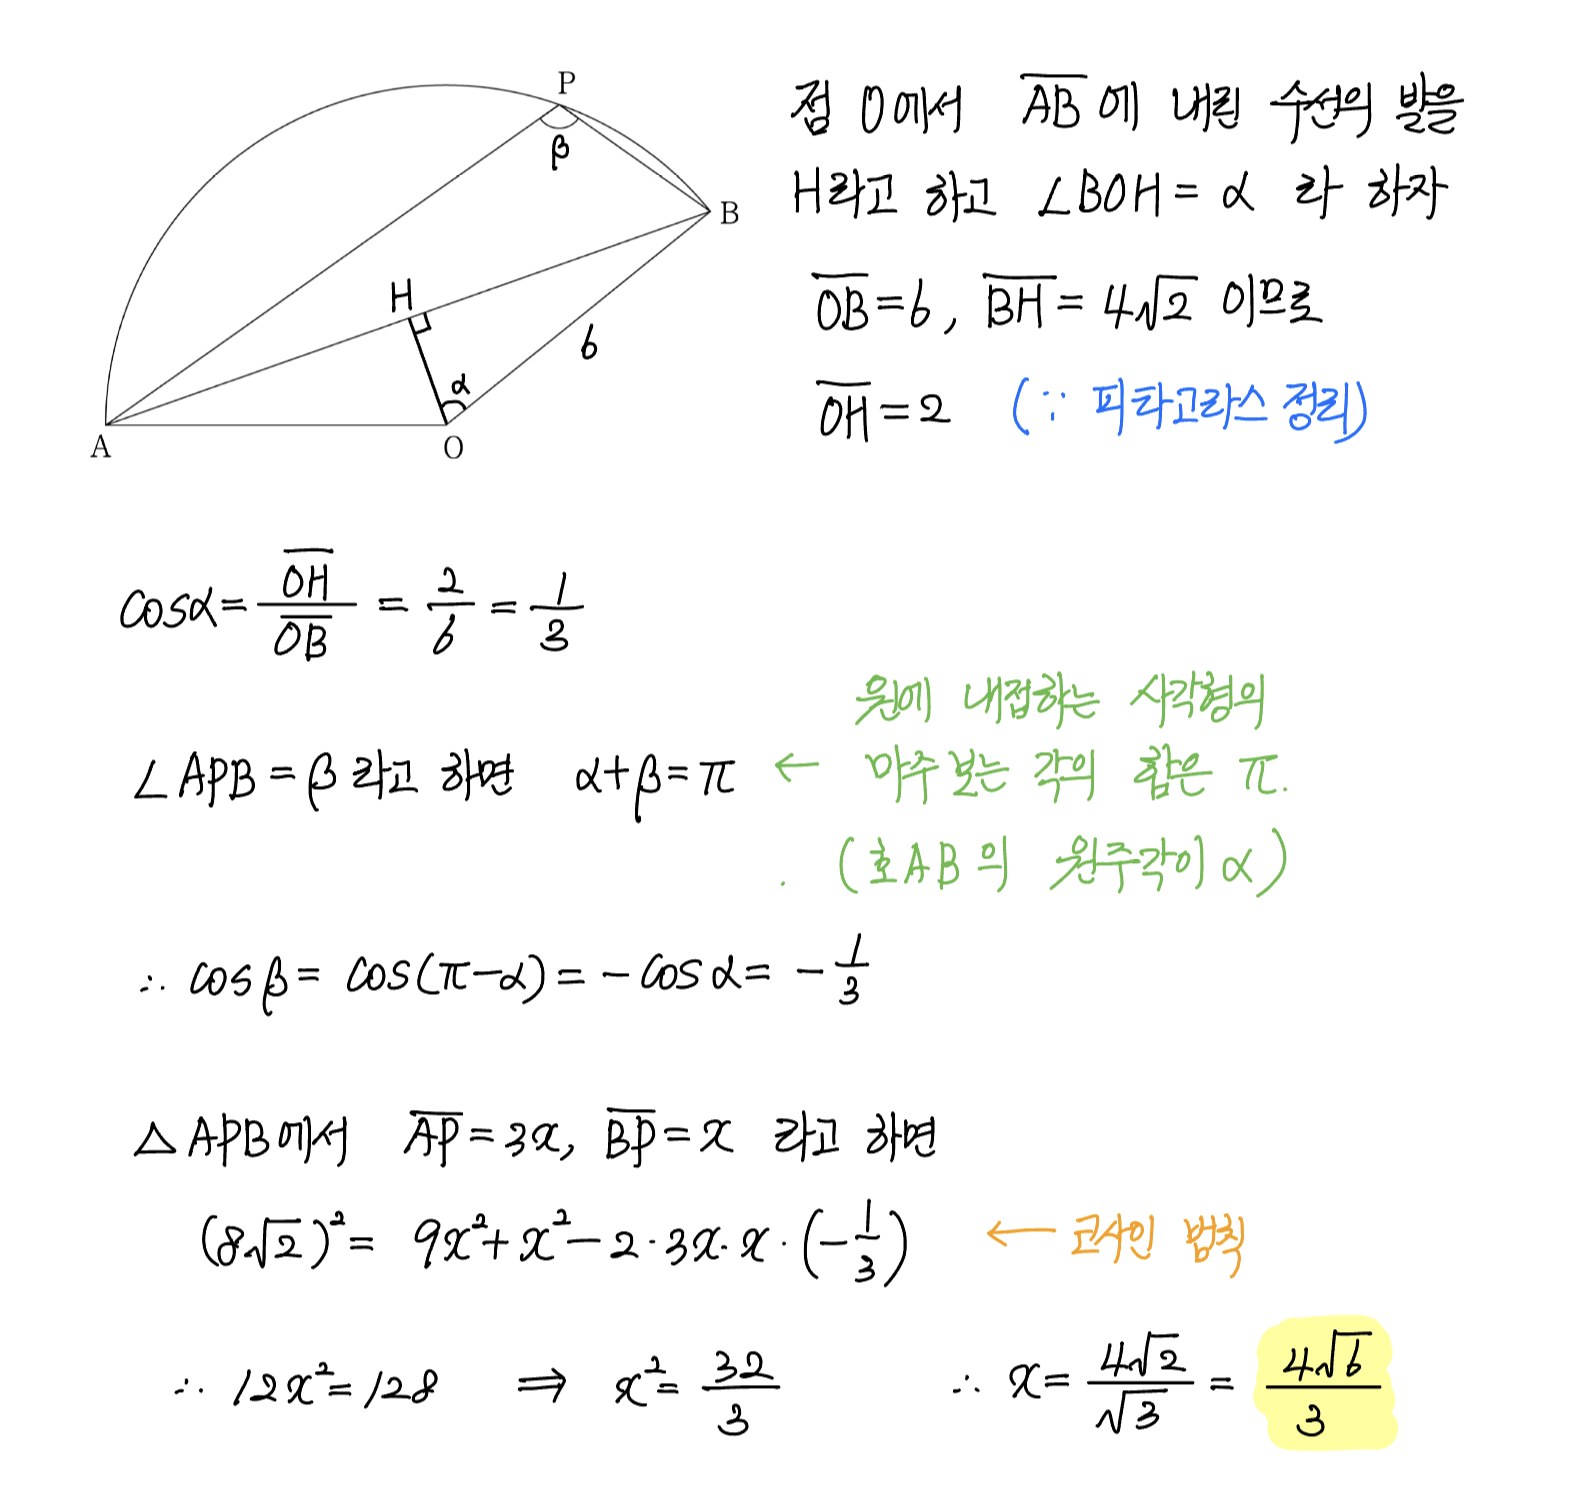 P
β
B
H
6
α
A
O
점 O에서 \overline{AB}에 내린 수선의 발을
H라고 하고 ∠BOH = α 라 하자
\overline{OB} = 6, \overline{BH} = 4√2 이므로
\overline{OH} = 2 (∵ 피타고라스 정리)
cosα = \overline{OH}/\overline{OB} = 2/6 = 1/3
원에 내접하는 사각형의
∠APB = β 라고 하면 α+β=π ← 마주보는 각의 합은 π.
(호AB의 원주각이 α)
∴ cosβ = cos(π-α) = -cosα = -1/3
△APB에서 \overline{AP} = 3x, \overline{BP} = x 라고 하면
(8√2)² = 9x² + x² - 2·3x·x·(-1/3) ← 코사인 법칙
∴ 12x² = 128 ⇒ x² = 32/3 ∴ x = 4√2/√3 = 4√6/3